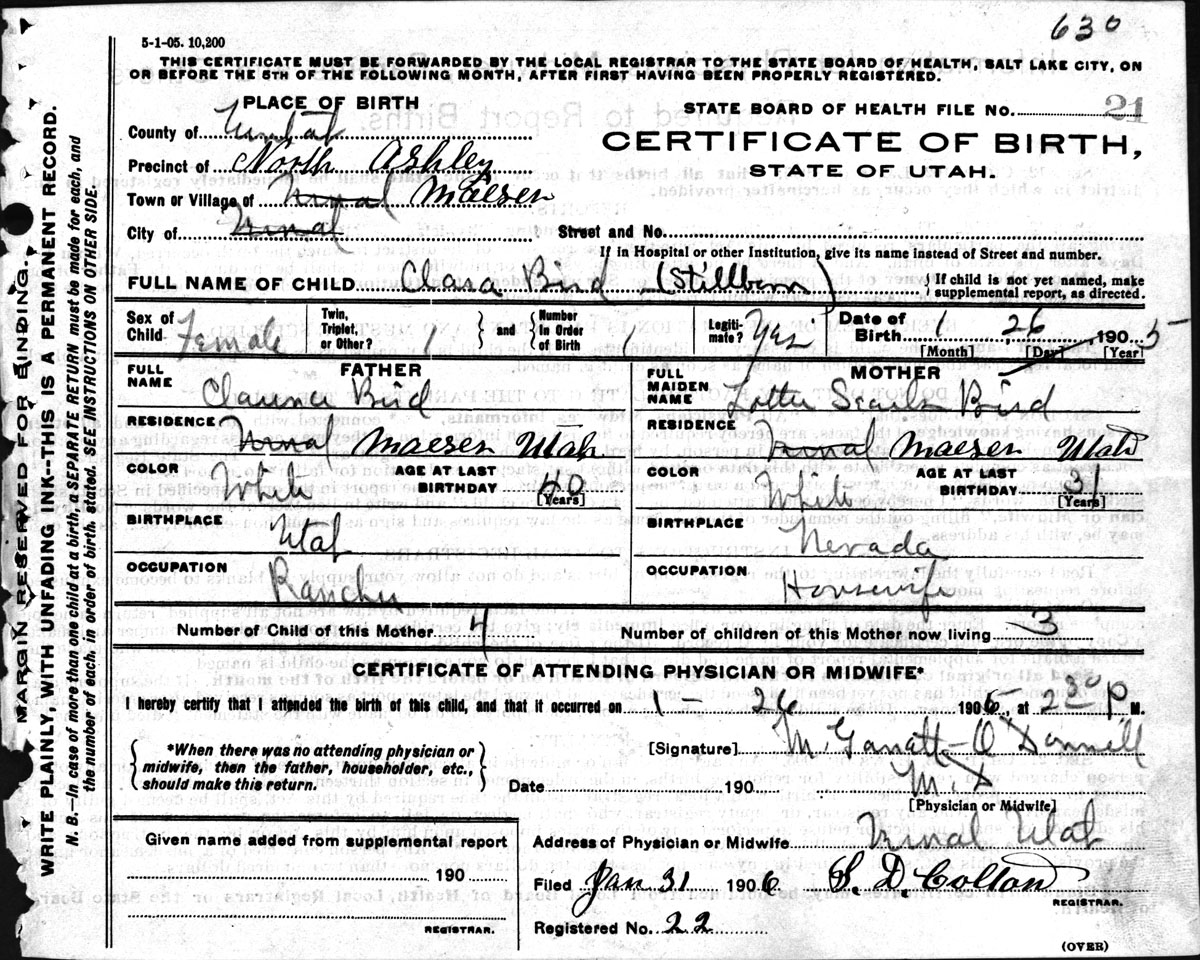 630
5-1-05. 10,200
THIS CERTIFICATE MUST BE FORWARDED BY THE LOCAL REGISTRAR TO THE STATE BOARD OF HEALTH, SALT LAKE CITY, ON
OR BEFORE THE 5TH OF THE FOLLOWING MONTH, AFTER FIRST HAVING BEEN PROPERLY REGISTERED.
PLACE OF BIRTH
STATE BOARD OF HEALTH FILE No. 21
County of
CERTIFICATE OF BIRTH,
STATE OF UTAH.
Precinct of North Ashley
Town or Village of Vernal Maeser
City of Vernal
Street and No.
If in Hospital or other Institution, give its name instead of Street and number.
FULL NAME OF CHILD Clara Bird (Stillborn)
{ If child is not yet named, make
supplemental report, as directed.
Sex of Child Female
Twin, Triplet, or Other? 1 } and { Number In Order of Birth 1
Legiti-mate? Yes
Date of Birth 1 26 1905
[Month] [Day] [Year]
FATHER
FULL NAME Clarence Bird
RESIDENCE Vernal Maeser Utah
COLOR White
AGE AT LAST BIRTHDAY 40 [Years]
BIRTHPLACE Utah
OCCUPATION Rancher
MOTHER
FULL MAIDEN NAME Lottie Searle Bird
RESIDENCE Vernal Maeser Utah
COLOR White
AGE AT LAST BIRTHDAY 31 [Years]
BIRTHPLACE Nevada
OCCUPATION Housewife
Number of Child of this Mother 4
Number of children of this Mother now living 3
CERTIFICATE OF ATTENDING PHYSICIAN OR MIDWIFE*
I hereby certify that I attended the birth of this child, and that it occurred on 1 - 26 1906, at 2 30 P M.
{ *When there was no attending physician or
midwife, then the father, householder, etc.,
should make this return. }
[Signature] M. Garratt-O'Donnell
Date 190 M.D
[Physician or Midwife]
Given name added from supplemental report
190
REGISTRAR.
Address of Physician or Midwife Vernal Utah
Filed Jan 31 1906 S. D. Colton
REGISTRAR.
Registered No. 22
(OVER)
MARGIN RESERVED FOR BINDING.
WRITE PLAINLY, WITH UNFADING INK--THIS IS A PERMANENT RECORD.
N. B.—In case of more than one child at a birth, a SEPARATE RETURN must be made for each, and
the number of each, in order of birth, stated. SEE INSTRUCTIONS ON OTHER SIDE.